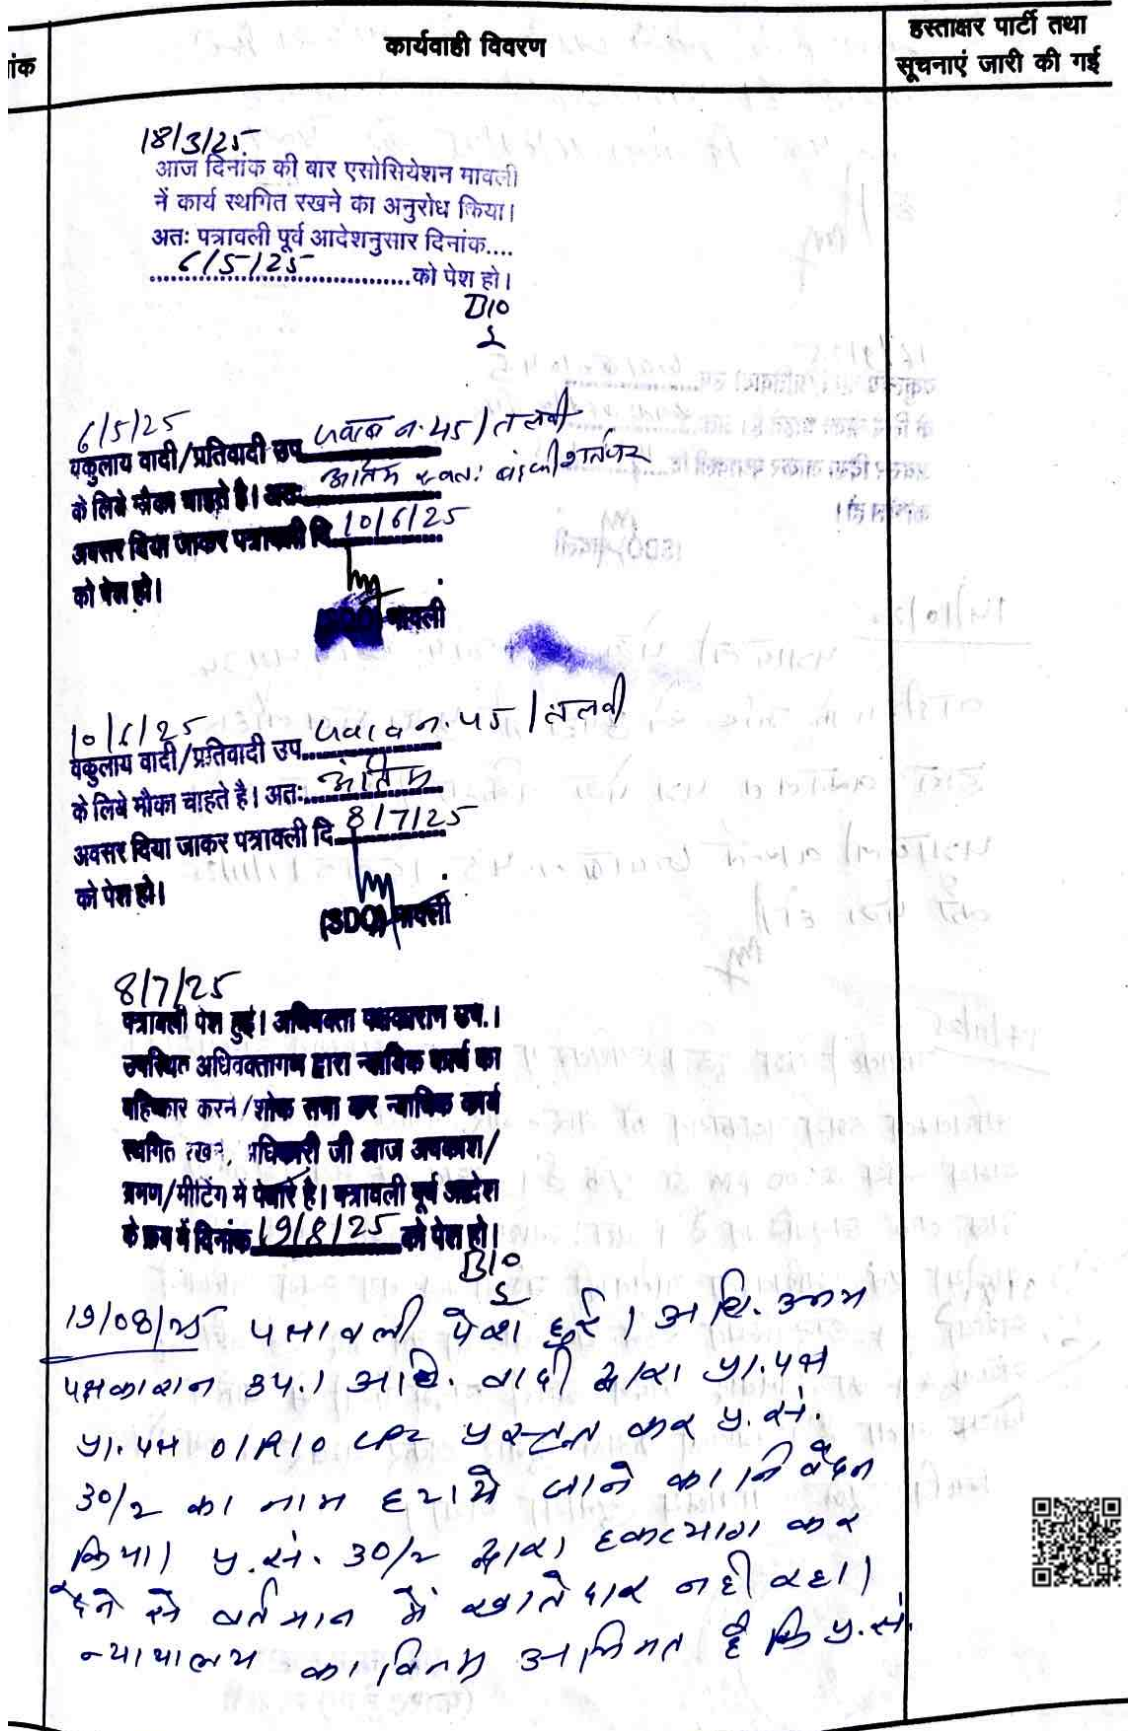 ांक
कार्यवाही विवरण
हस्ताक्षर पार्टी तथा
सूचनाएं जारी की गई
18/3/25
आज दिनांक की बार एसोसियेशन मावली
नें कार्य स्थगित रखने का अनुरोध किया।
अतः पत्रावली पूर्व आदेशनुसार दिनांक....
6/5/25 को पेश हो।
6/5/25
वकुलाय वादी/प्रतिवादी उप जवाब न. 45/तलबी
के लिये मौका चाहते है। अतः अंतिम
अवसर दिया जाकर पत्रावली दि 10/6/25
को पेश हो।
(SDO) मावली
10/6/25
वकुलाय वादी/प्रतिवादी उप. जवाब न. 45/तलबी
के लिये मौका चाहते है। अतः अंतिम
अवसर दिया जाकर पत्रावली दि 8/7/25
को पेश हो।
(SDO) मावली
8/7/25
पत्रावली पेश हुई। अधिवक्ता पक्षकारान उप.।
उपस्थित अधिवक्तागण द्वारा न्यायिक कार्य का
बहिष्कार करने/शोक सभा कर न्यायिक कार्य
स्थगित रखने, अधिकारी जी आज अवकाश/
भ्रमण/मीटिंग में पधारे है। पत्रावली पूर्व आदेश
के क्रम में दिनांक 19/8/25 को पेश हो।
19/08/25 पत्रावली पेश हुई। अधि. उभय
पक्षकारान उप.। अधि. वादी द्वारा प्रा.पत्र
प्रा.पत्र O1R10 CPC प्रस्तुत कर प्र.सं.
30/2 का नाम हटाये जाने का निवेदन
किया। प्र.सं. 30/2 द्वारा हकत्याग कर
देने से वर्तमान में खातेदार नही रहा।
न्यायालय का विनम्र अभिमत है कि प्र.सं.